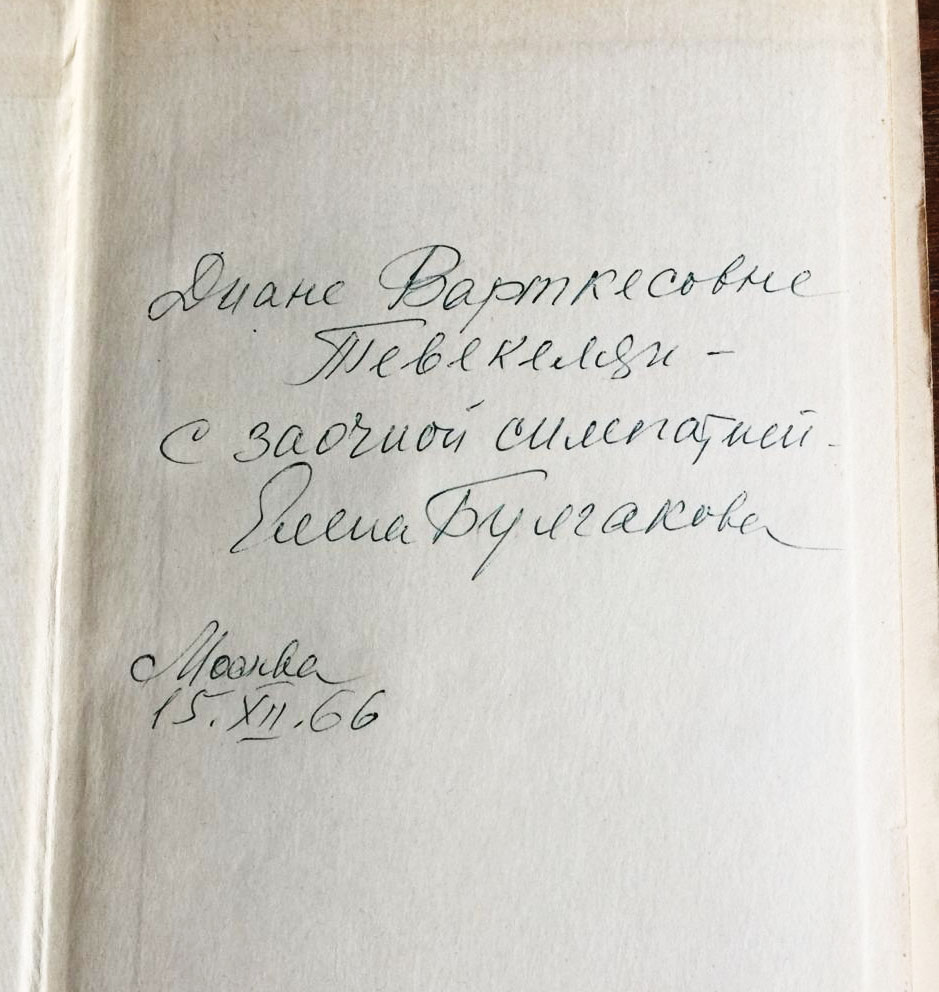 Диане Варткесовне
Тевекелян –
С заочной симпатией –
Елена Булгакова
Москва
15.XII.66